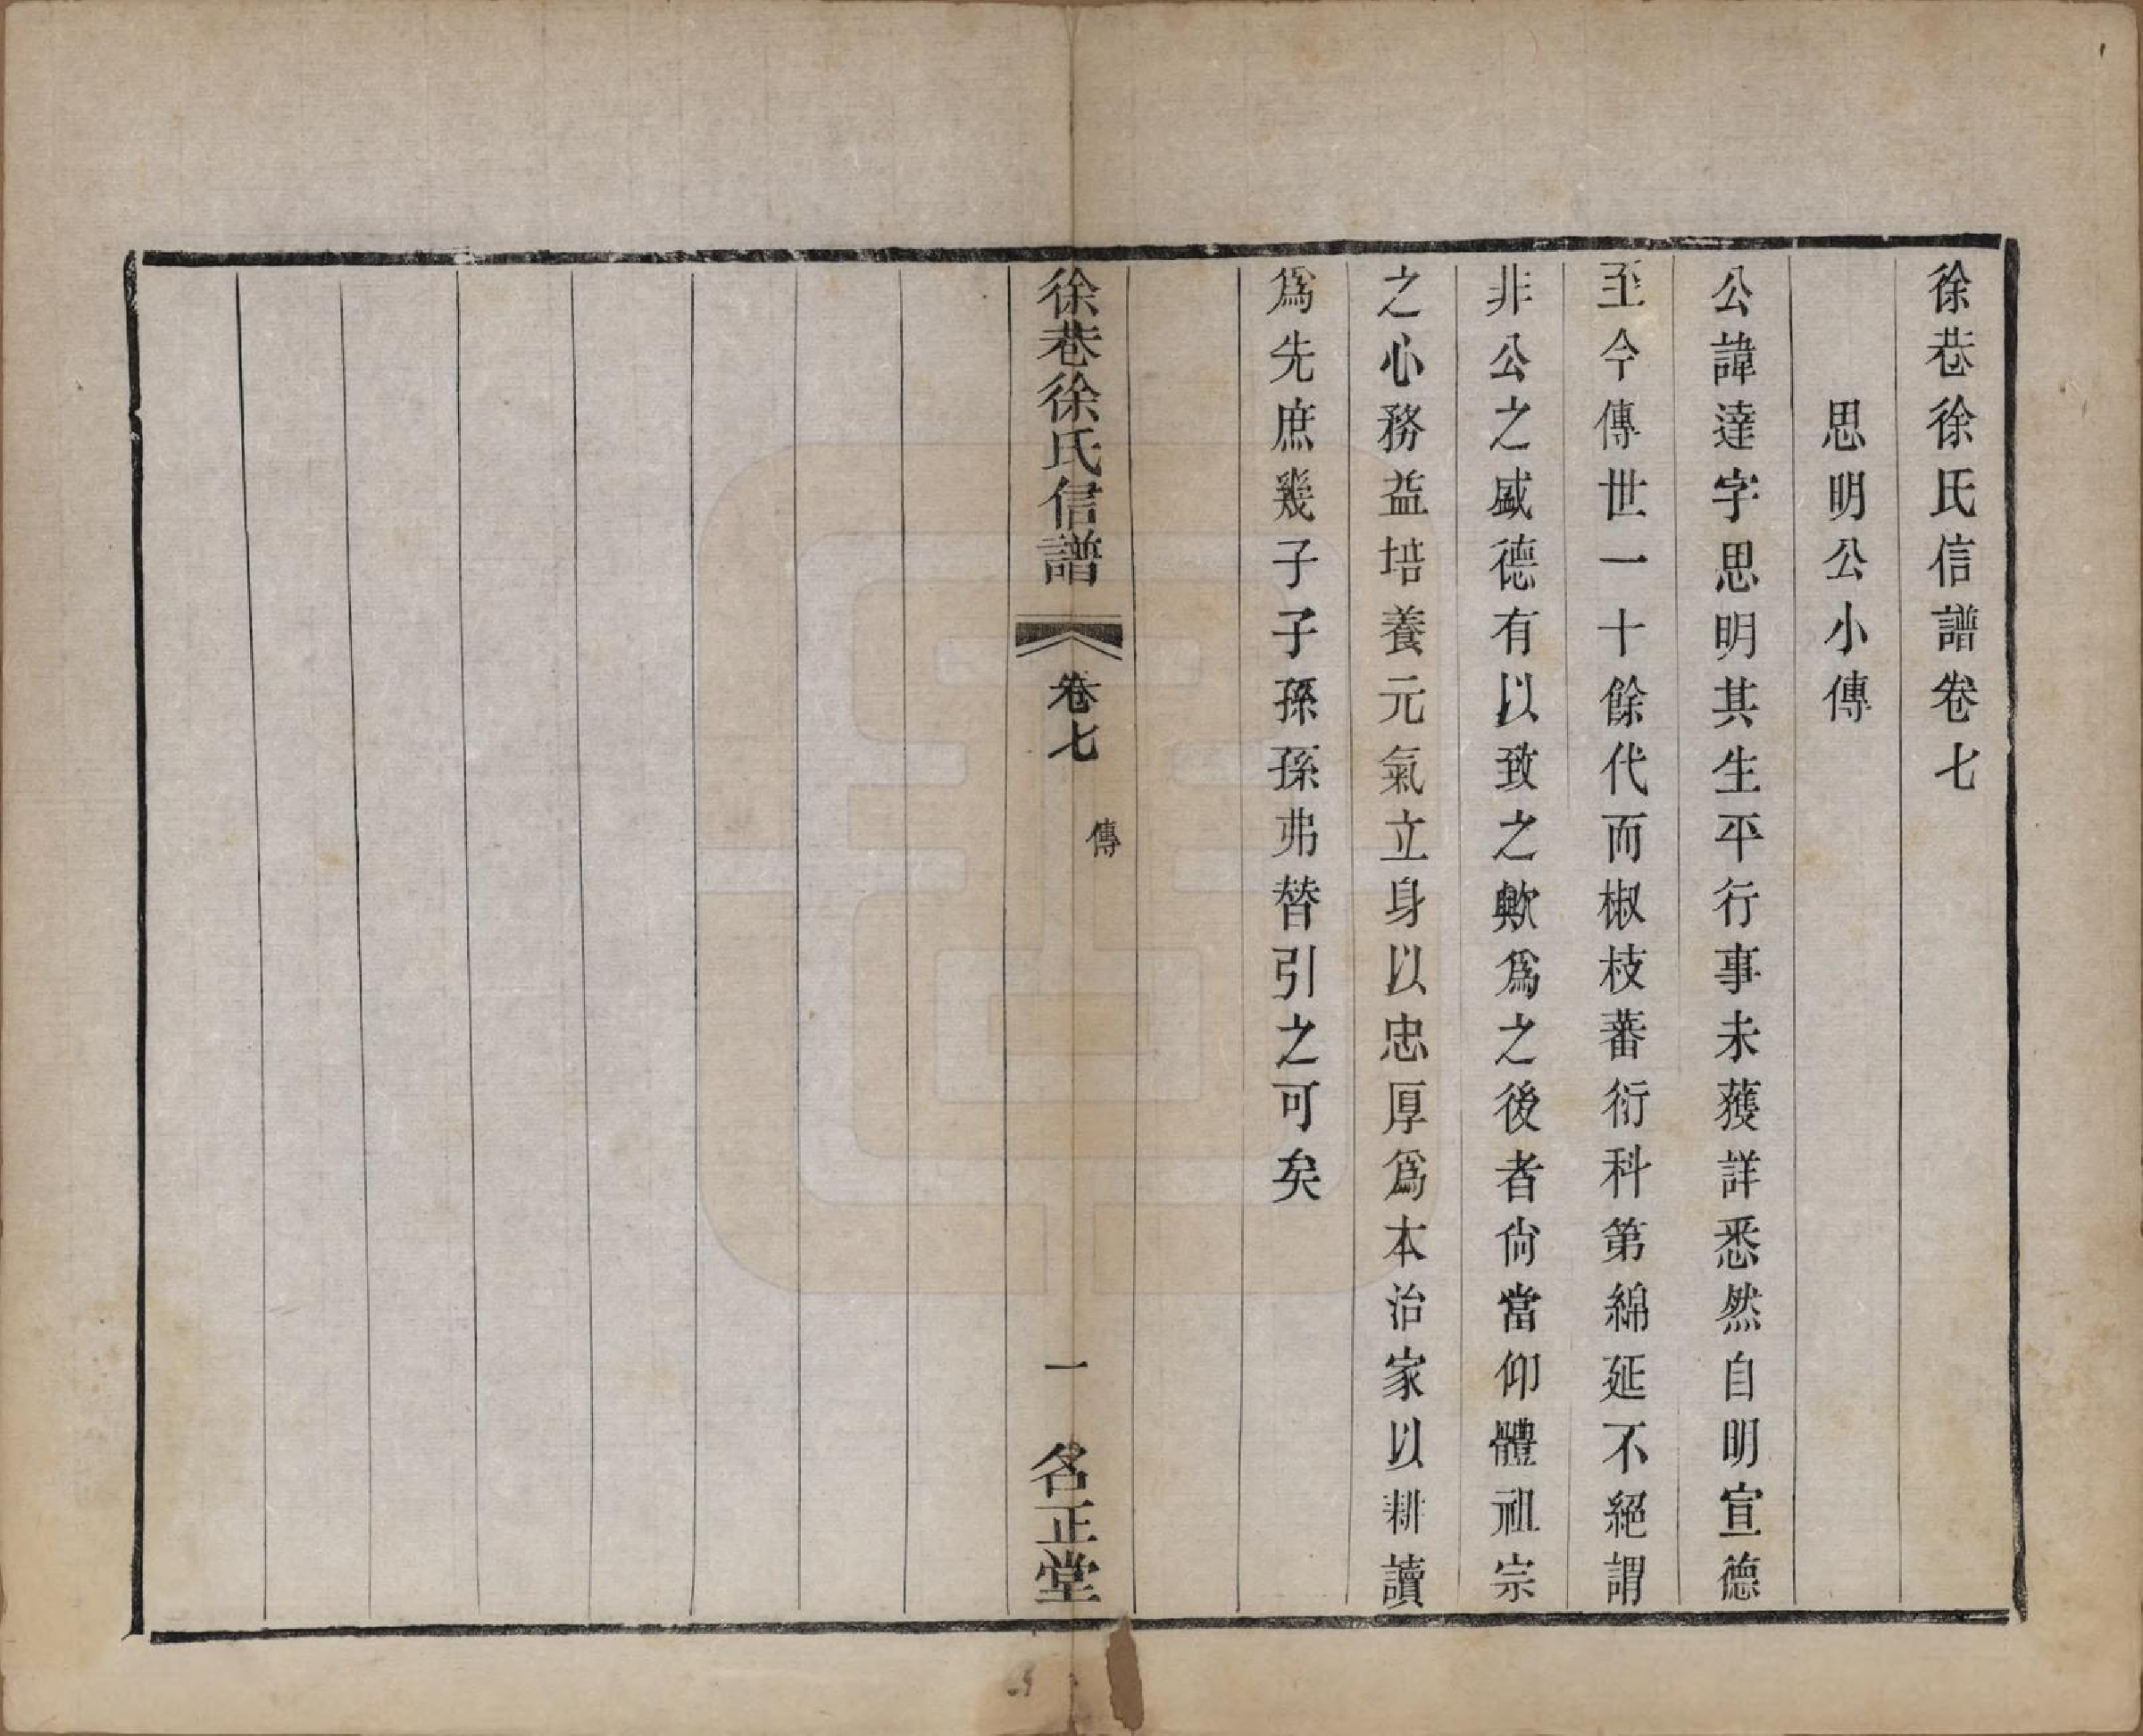 徐巷徐氏信譜卷七
思明公小傳
公諱達字思明其生平行事未獲詳悉然自明宣德
至今傳世一十餘代而椒枝蕃衍科第綿延不絕謂
非公之盛德有以致之歟爲之後者尙當仰體祖宗
之心務益培養元氣立身以忠厚爲本治家以耕讀
爲先庶幾子子孫孫弗替引之可矣
徐巷徐氏信譜 卷七 傳 一 名正堂